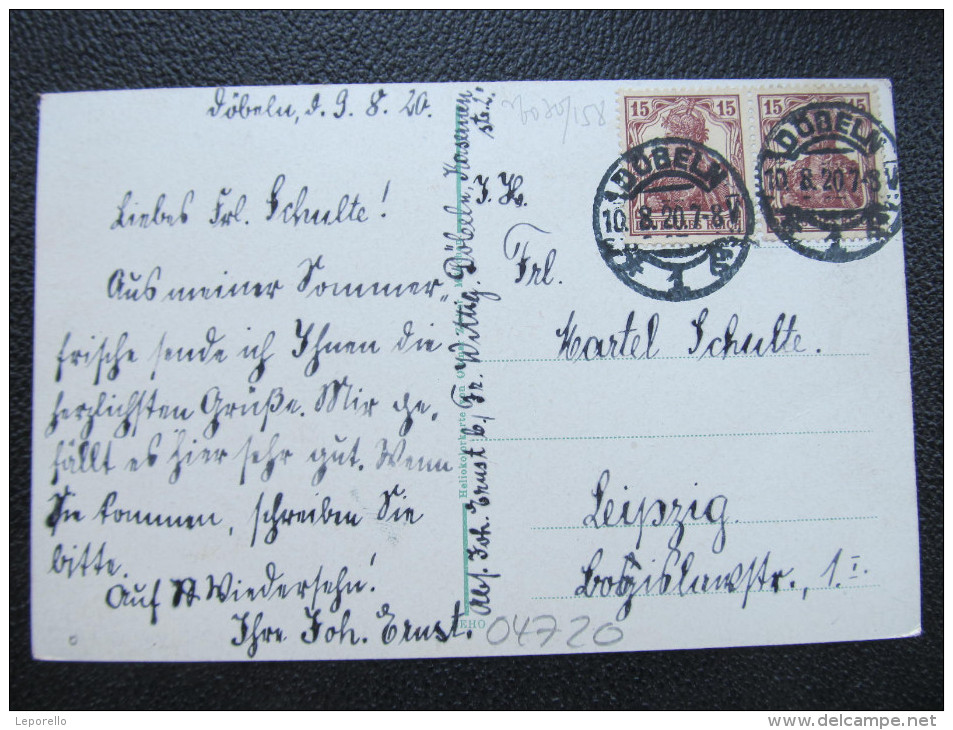 Döbeln, d. 9. 8. 20.
Liebes Frl. Schulte!
Aus meiner Sommer-
frische sende ich Ihnen die
herzlichsten Grüße. Mir ge-
fällt es hier sehr gut. Wenn
Sie kommen, schreiben Sie
bitte.
Auf Wiedersehn!
Ihre Joh. Ernst.
Abs. Joh. Ernst b. Fr. Wittig. Döbeln,
Heliokolorkarte von
EHO
15 15
15 15
REICH
DÖBELN
10. 8. 20. 7-8 V.
1
DÖBELN
10. 8. 20 7-8 V
1
Frl.
Martel Schulte.
Leipzig.
1. I.
04720
Leporello
www.delcampe.net